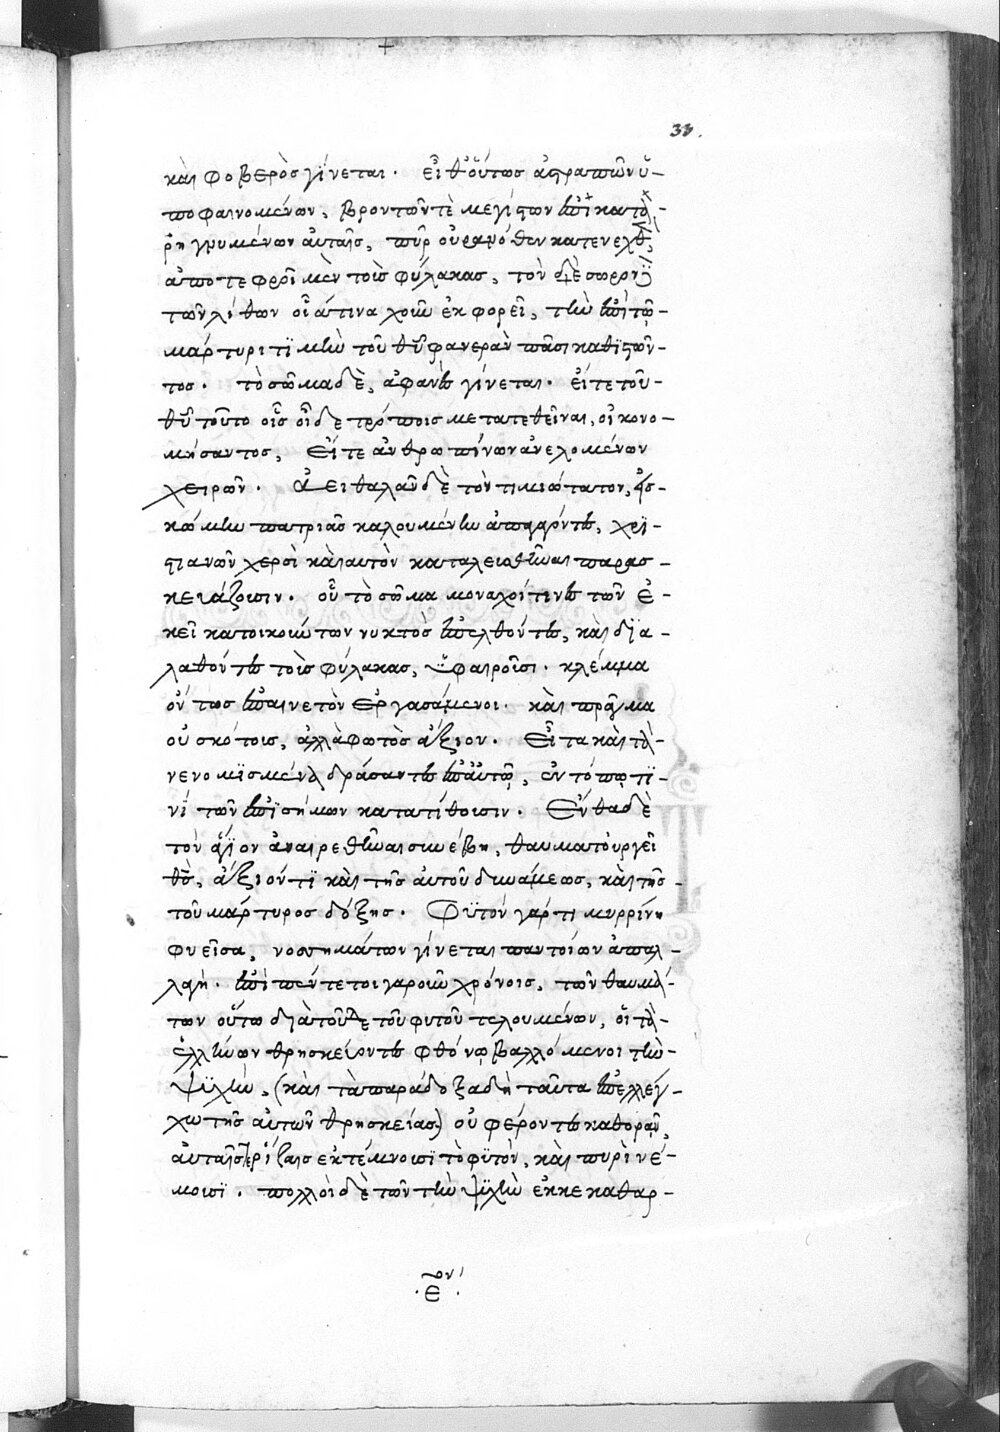 33.
καὶ φοβερὸς γίνεται. εἶθ' οὕτως ἀστραπῶν ὑ-
ποφαινομένων, βροντῶν τὲ μεγίστων ἐπικατα-
ρηγνυμένων αὐταῖς, πῦρ οὐρανόθεν κατενεχθὲν,
ἀποτεφροῖ μὲν τοὺς φύλακας, τὸν δὲ σωρὸν
τῶν λίθων οἷα τινα χοῦν ἐκφορεῖ, τὴν ἐπὶ τῷ
μάρτυρι τιμὴν τοῦ θῦ φανερὰν πᾶσι καθιστῶν-
τος. τὸ σῶμα δὲ, ἀφανὲς γίνεται. εἴτε τοῦ
θῦ τοῦτο οἷς οἶδε τρόποις μετατεθεῖναι, οἰκονο-
μήσαντος, Εἴτε ἀνθρωπίνων ἀνελομένων
χειρῶν. Ἀειθαλᾶν δὲ τὸν τιμιώτατον, εἰς
κώμην πατριὰς καλουμένην ἀπαγαγόντες, χρι-
στιανῶν χερσὶ καὶ αυτὸν καταλευσθῆναι παρασ-
κευάζουσιν. οὗ τὸ σῶμα μοναχοί τινες τῶν ἐ-
κεῖ κατοικούντων νυκτὸς ἐπελθόντες, καὶ δια-
λαθόντες τοὺς φύλακας, ὑφαιροῦσι. κλέμμα
ὄντως ἐπαινετὸν ἐργασάμενοι. καὶ πρᾶγμα
οὐ σκότους, ἀλλὰ φωτὸς ἄξιον. Εἶτα καὶ τὰ
νενομισμένα δράσαντες ἐπ' αὐτῷ, ἐν τόπῳ τι-
νὶ τῶν ἐπισήμων κατατίθουσιν. Ἔνθα δὲ
τὸν ἅγιον ἀναιρεθῆναι συνέβη, θαυματουργεῖ
θς, ἄξιόν τι καὶ τῆς αὐτοῦ δυνάμεως, καὶ τῆς
τοῦ μάρτυρος δόξης. Φυτὸν γάρ τι μυρρίνη
φυεῖσα, νοσημάτων γίνεται παντοίων ἀπαλ-
λαγή. ἐπὶ πέντε τοιγαροῦν χρόνοις, τῶν θαυμά-
των οὕτω διὰ τοῦδε τοῦ φυτοῦ τελουμένων, οἱ τὰ
ἑλλήνων θρησκεύοντες φθόνῳ βαλλόμενοι τὴν
ψυχὴν, (καὶ τὰ παράδοξα δὴ ταῦτα ἐπ' ἐλλέγ-
χω τῆς αὐτῶν θρησκείας) οὐ φέροντες καθορᾶν,
αὐταῖς ῥίζαις ἐκτέμνουσι τὸ φυτὸν, καὶ πυρὶ νέ-
μουσι. πολλοὶ δὲ τῶν τὴν ψυχὴν ἐκκεκαθαρ-
ε